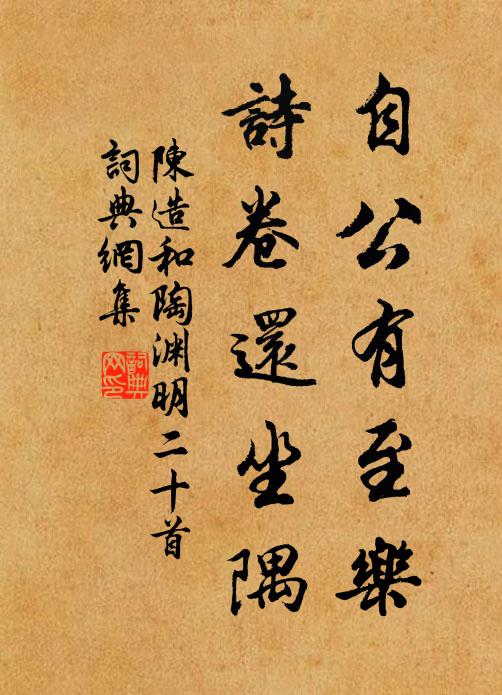 自公有至樂
詩卷還坐隅
陳造和陶渊明二十首
詞典網集
詞典网印